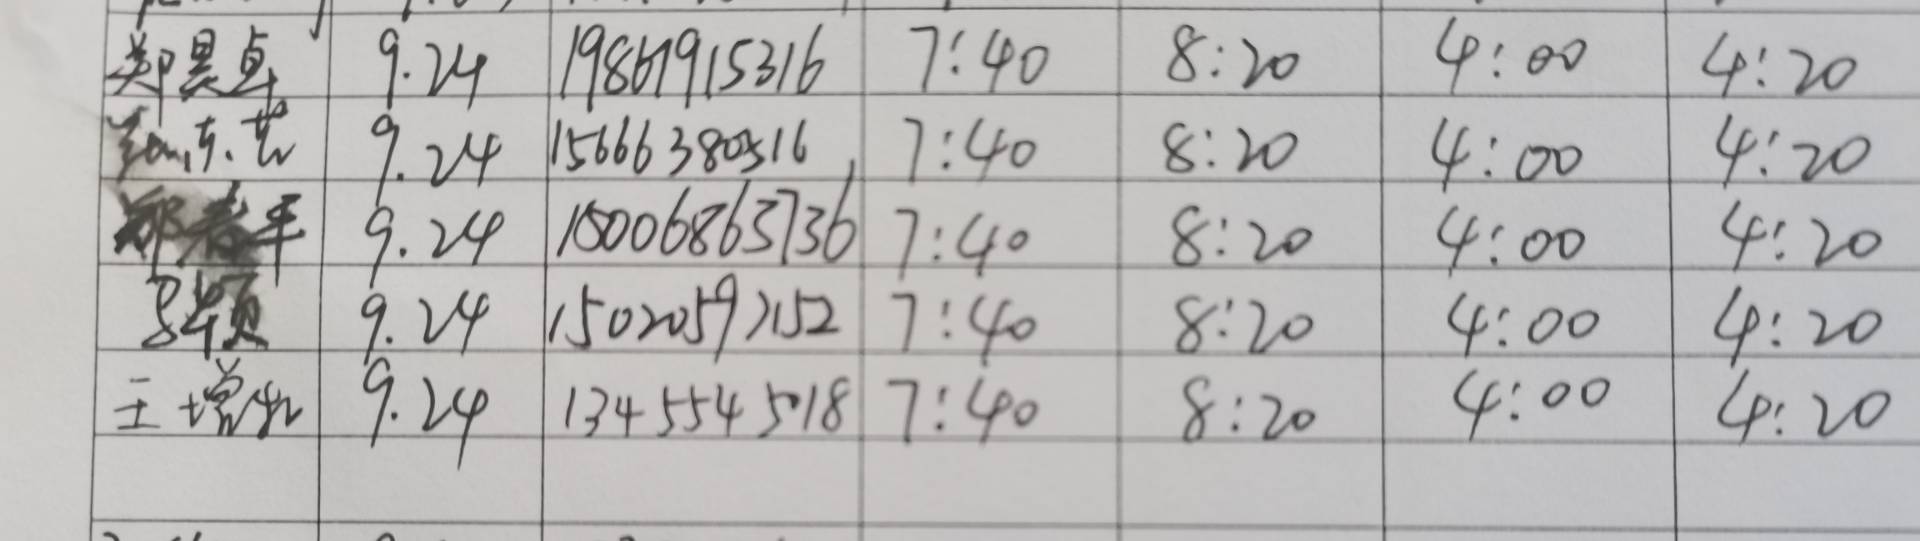 郑昊卓 9.24 19861915316 7:40 8:20 4:00 4:20
9.24 15666380516 7:40 8:20 4:00 4:20
郑春平 9.24 15006863736 7:40 8:20 4:00 4:20
9.24 15020597152 7:40 8:20 4:00 4:20
王增 9.24 1345545018 7:40 8:20 4:00 4:20